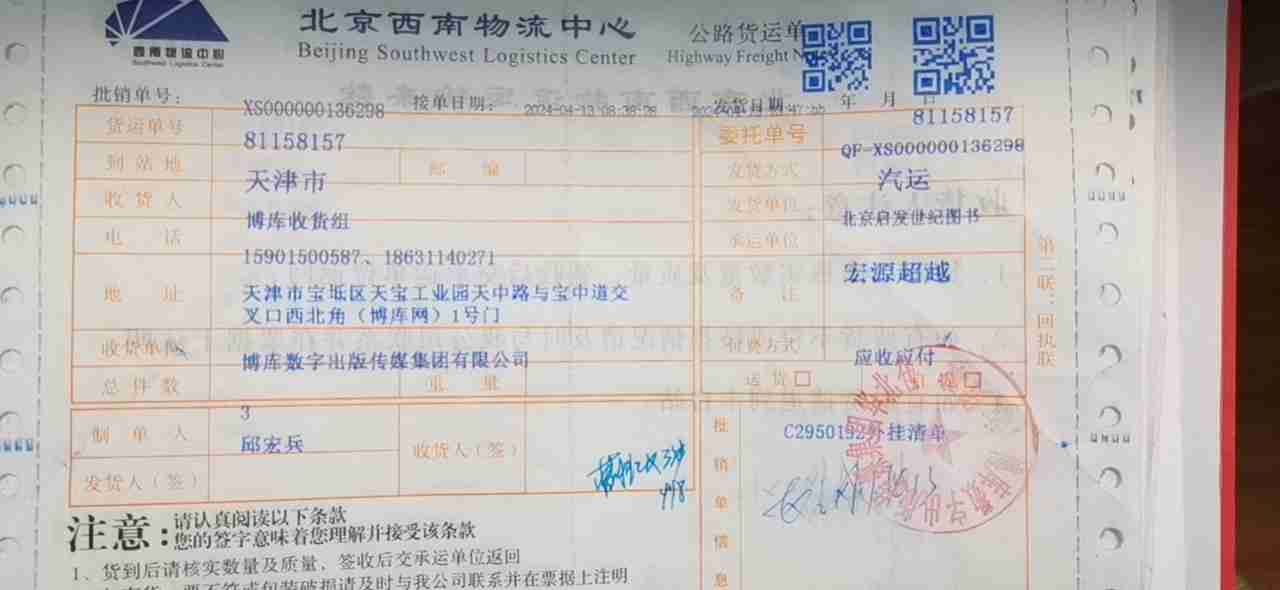 北京西南物流中心
Beijing Southwest Logistics Center
西南物流中心
Southwest Logistics Center
公路货运单
Highway Freight
批销单号：
XS000000136298
接单日期：
2024-04-13 08:38:28
发货日期：
年 月 日
货运单号
81158157
委托单号
81158157
QF-XS000000136298
到站地
天津市
邮 编
发货方式
汽运
收货人
博库收货组
发货单位
北京启发世纪图书
电 话
15901500587、18631140271
承运单位
宏源超越
地 址
天津市宝坻区天宝工业园天中路与宝中道交
叉口西北角（博库网）1号门
备 注
收货单位
博库数字出版传媒集团有限公司
付费方式
应收应付
总件数
3
重 量
送货□
提□
制单人
邱宏兵
收货人（签）
发货人（签）
批销单信息
C2950192外挂清单
第二联：回执联
注意：
请认真阅读以下条款
您的签字意味着您理解并接受该条款
1、货到后请核实数量及质量，签收后交承运单位返回
要不符或包装破损请及时与我公司联系并在票据上注明